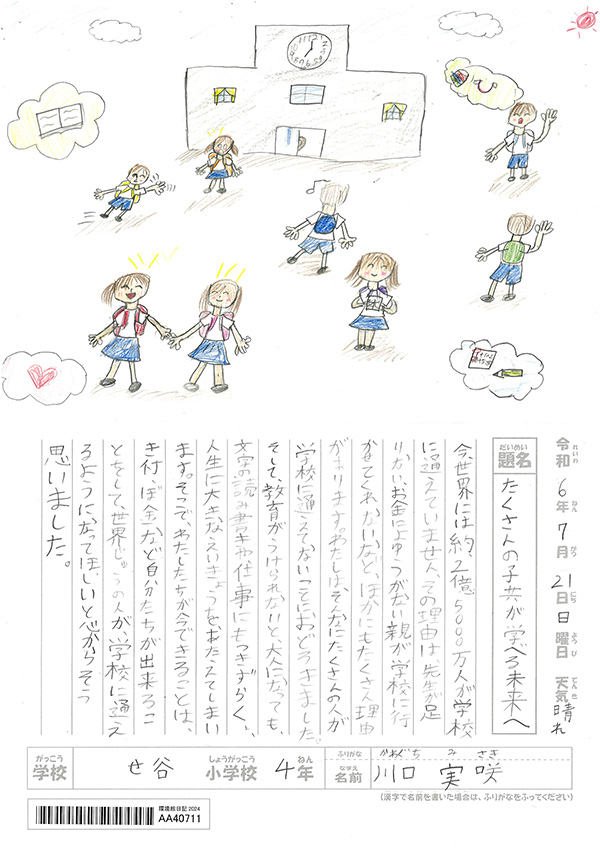 令和6年7月21日日曜日 天気晴れ
題名 たくさんの子共が学べる未来へ
今、世界には約2億5000万人が学校
に通えていません。その理由は、先生が足
りない、お金によゆうがない親が学校に行
かせてくれないなど、ほかにもたくさん理由
があります。わたしは、そんなにたくさんの人が
学校に通えてないことにおどろきました。
そして、教育がうけられないと、大人になっても、
文字の読み書きや仕事にもつきずらく、
人生に大きなえいきょうをあたえてしまい
ます。そこで、わたしたちが今できることは、
き付、ぼ金など自分たちが出来るこ
とをして、世界じゅうの人が、学校に通え
るようになってほしいと心からそう
思いました。
学校 せ谷 小学校 4年 名前 川口 実咲
かわぐち みさき
(漢字で名前を書いた場合は、ふりがなをふってください)
環境絵日記 2024
AA40711